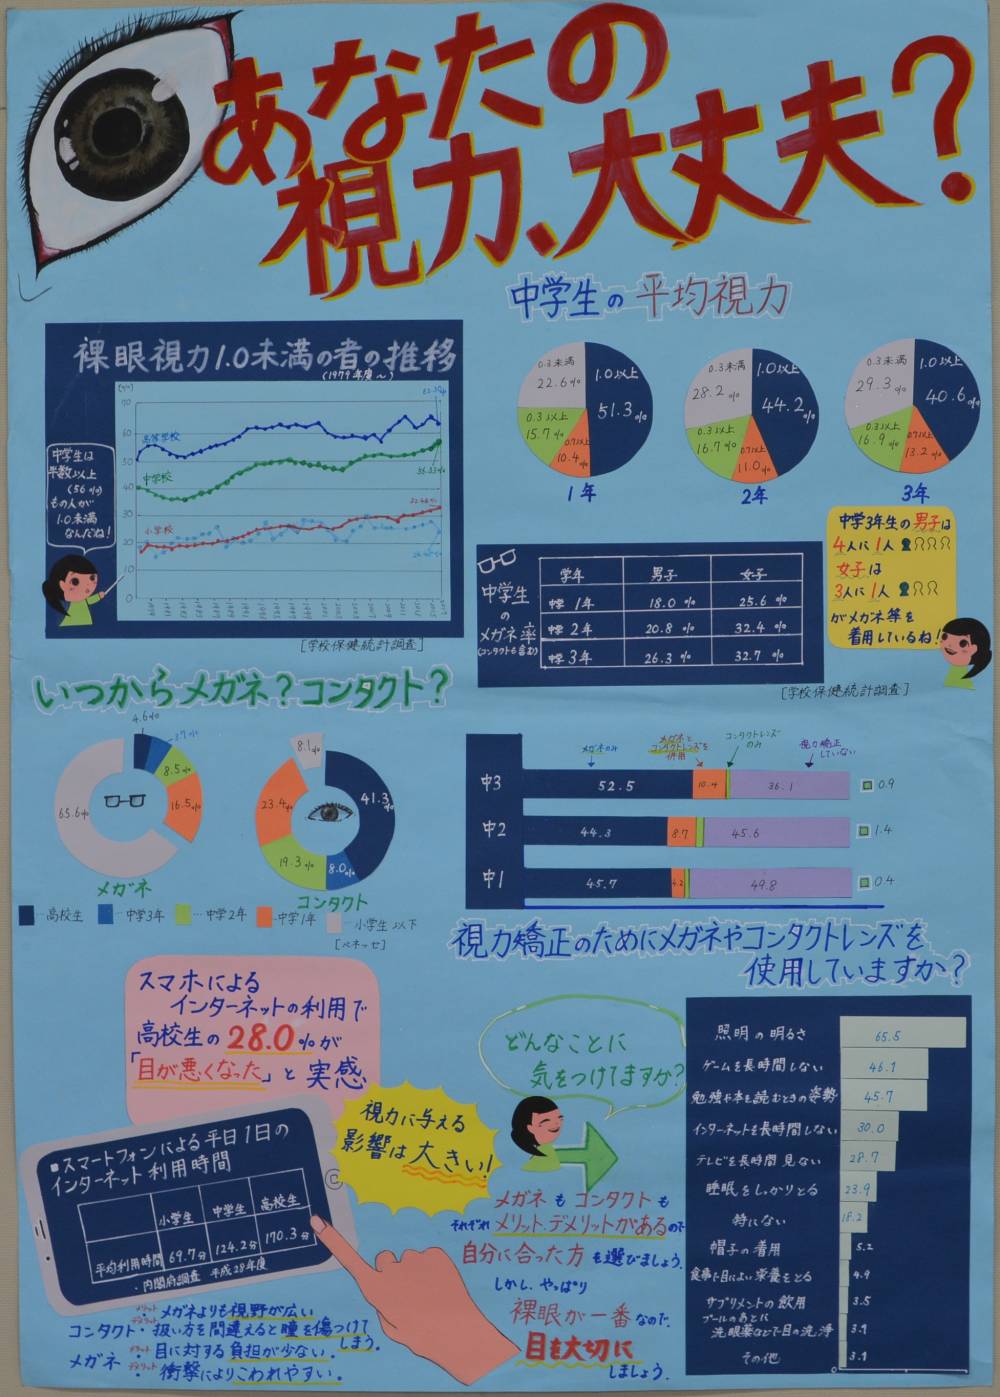 あなたの
視力、大丈夫？
中学生の平均視力
裸眼視力1.0未満の者の推移
(1979年度～)
(%)
70
60
50
40
30
20
10
0
高等学校
中学校
小学校
中学生は
半数以上
(56%)
もの人が
1.0未満
なんだね！
[学校保健統計調査]
0.3未満
22.6%
1.0以上
51.3%
0.3以上
15.7%
0.7以上
10.4%
1年
0.3未満
28.2%
1.0以上
44.2%
0.3以上
16.7%
0.7以上
11.0%
2年
0.3未満
29.3%
1.0以上
40.6%
0.3以上
16.9%
0.7以上
13.2%
3年
中学生
の
メガネ率
(コンタクトも含む)
学年 男子 女子
中学1年 18.0% 25.6%
中学2年 20.8% 32.4%
中学3年 26.3% 32.7%
[学校保健統計調査]
中学3年生の男子は
4人に1人
女子は
3人に1人
がメガネ等を
着用しているね！
いつからメガネ？コンタクト？
4.6%
8.5%
16.5%
65.6%
メガネ
8.1%
41.3%
8.0%
19.3%
23.4%
コンタクト
…高校生 …中学3年 …中学2年 …中学1年 …小学生以下
[ベネッセ]
メガネのみ
メガネと
コンタクトレンズを
併用
コンタクトレンズ
のみ
視力矯正
していない
中3 52.5 10.4 36.1 0.9
中2 44.3 8.7 45.6 1.4
中1 45.7 4.2 49.8 0.4
視力矯正のためにメガネやコンタクトレンズを
使用していますか？
スマホによる
インターネットの利用で
高校生の28.0%が
「目が悪くなった」と実感
視力に与える
影響は大きい！
■スマートフォンによる平日1日の
インターネット利用時間
小学生 中学生 高校生
平均利用時間 69.7分 124.2分 170.3分
・内閣府調査 平成28年度
メリット メガネよりも視野が広い
コンタクト・
デメリット 扱い方を間違えると瞳を傷つけて
しまう。
メガネ
メリット 目に対する負担が少ない。
デメリット 衝撃によりこわれやすい。
どんなことに
気をつけてますか？
メガネもコンタクトも
それぞれメリット、デメリットがあるので
自分に合った方を選びましょう。
しかし、やっぱり
裸眼が一番なので、
目を大切に
しましょう。
照明の明るさ 65.5
ゲームを長時間しない 46.1
勉強や本を読むときの姿勢 45.7
インターネットを長時間しない 30.0
テレビを長時間見ない 28.7
睡眠をしっかりとる 23.9
特にない 18.2
帽子の着用 5.2
食事で目によい栄養をとる 4.9
サプリメントの飲用 3.5
プールのあとに
洗眼薬などで目の洗浄 3.1
その他 3.1